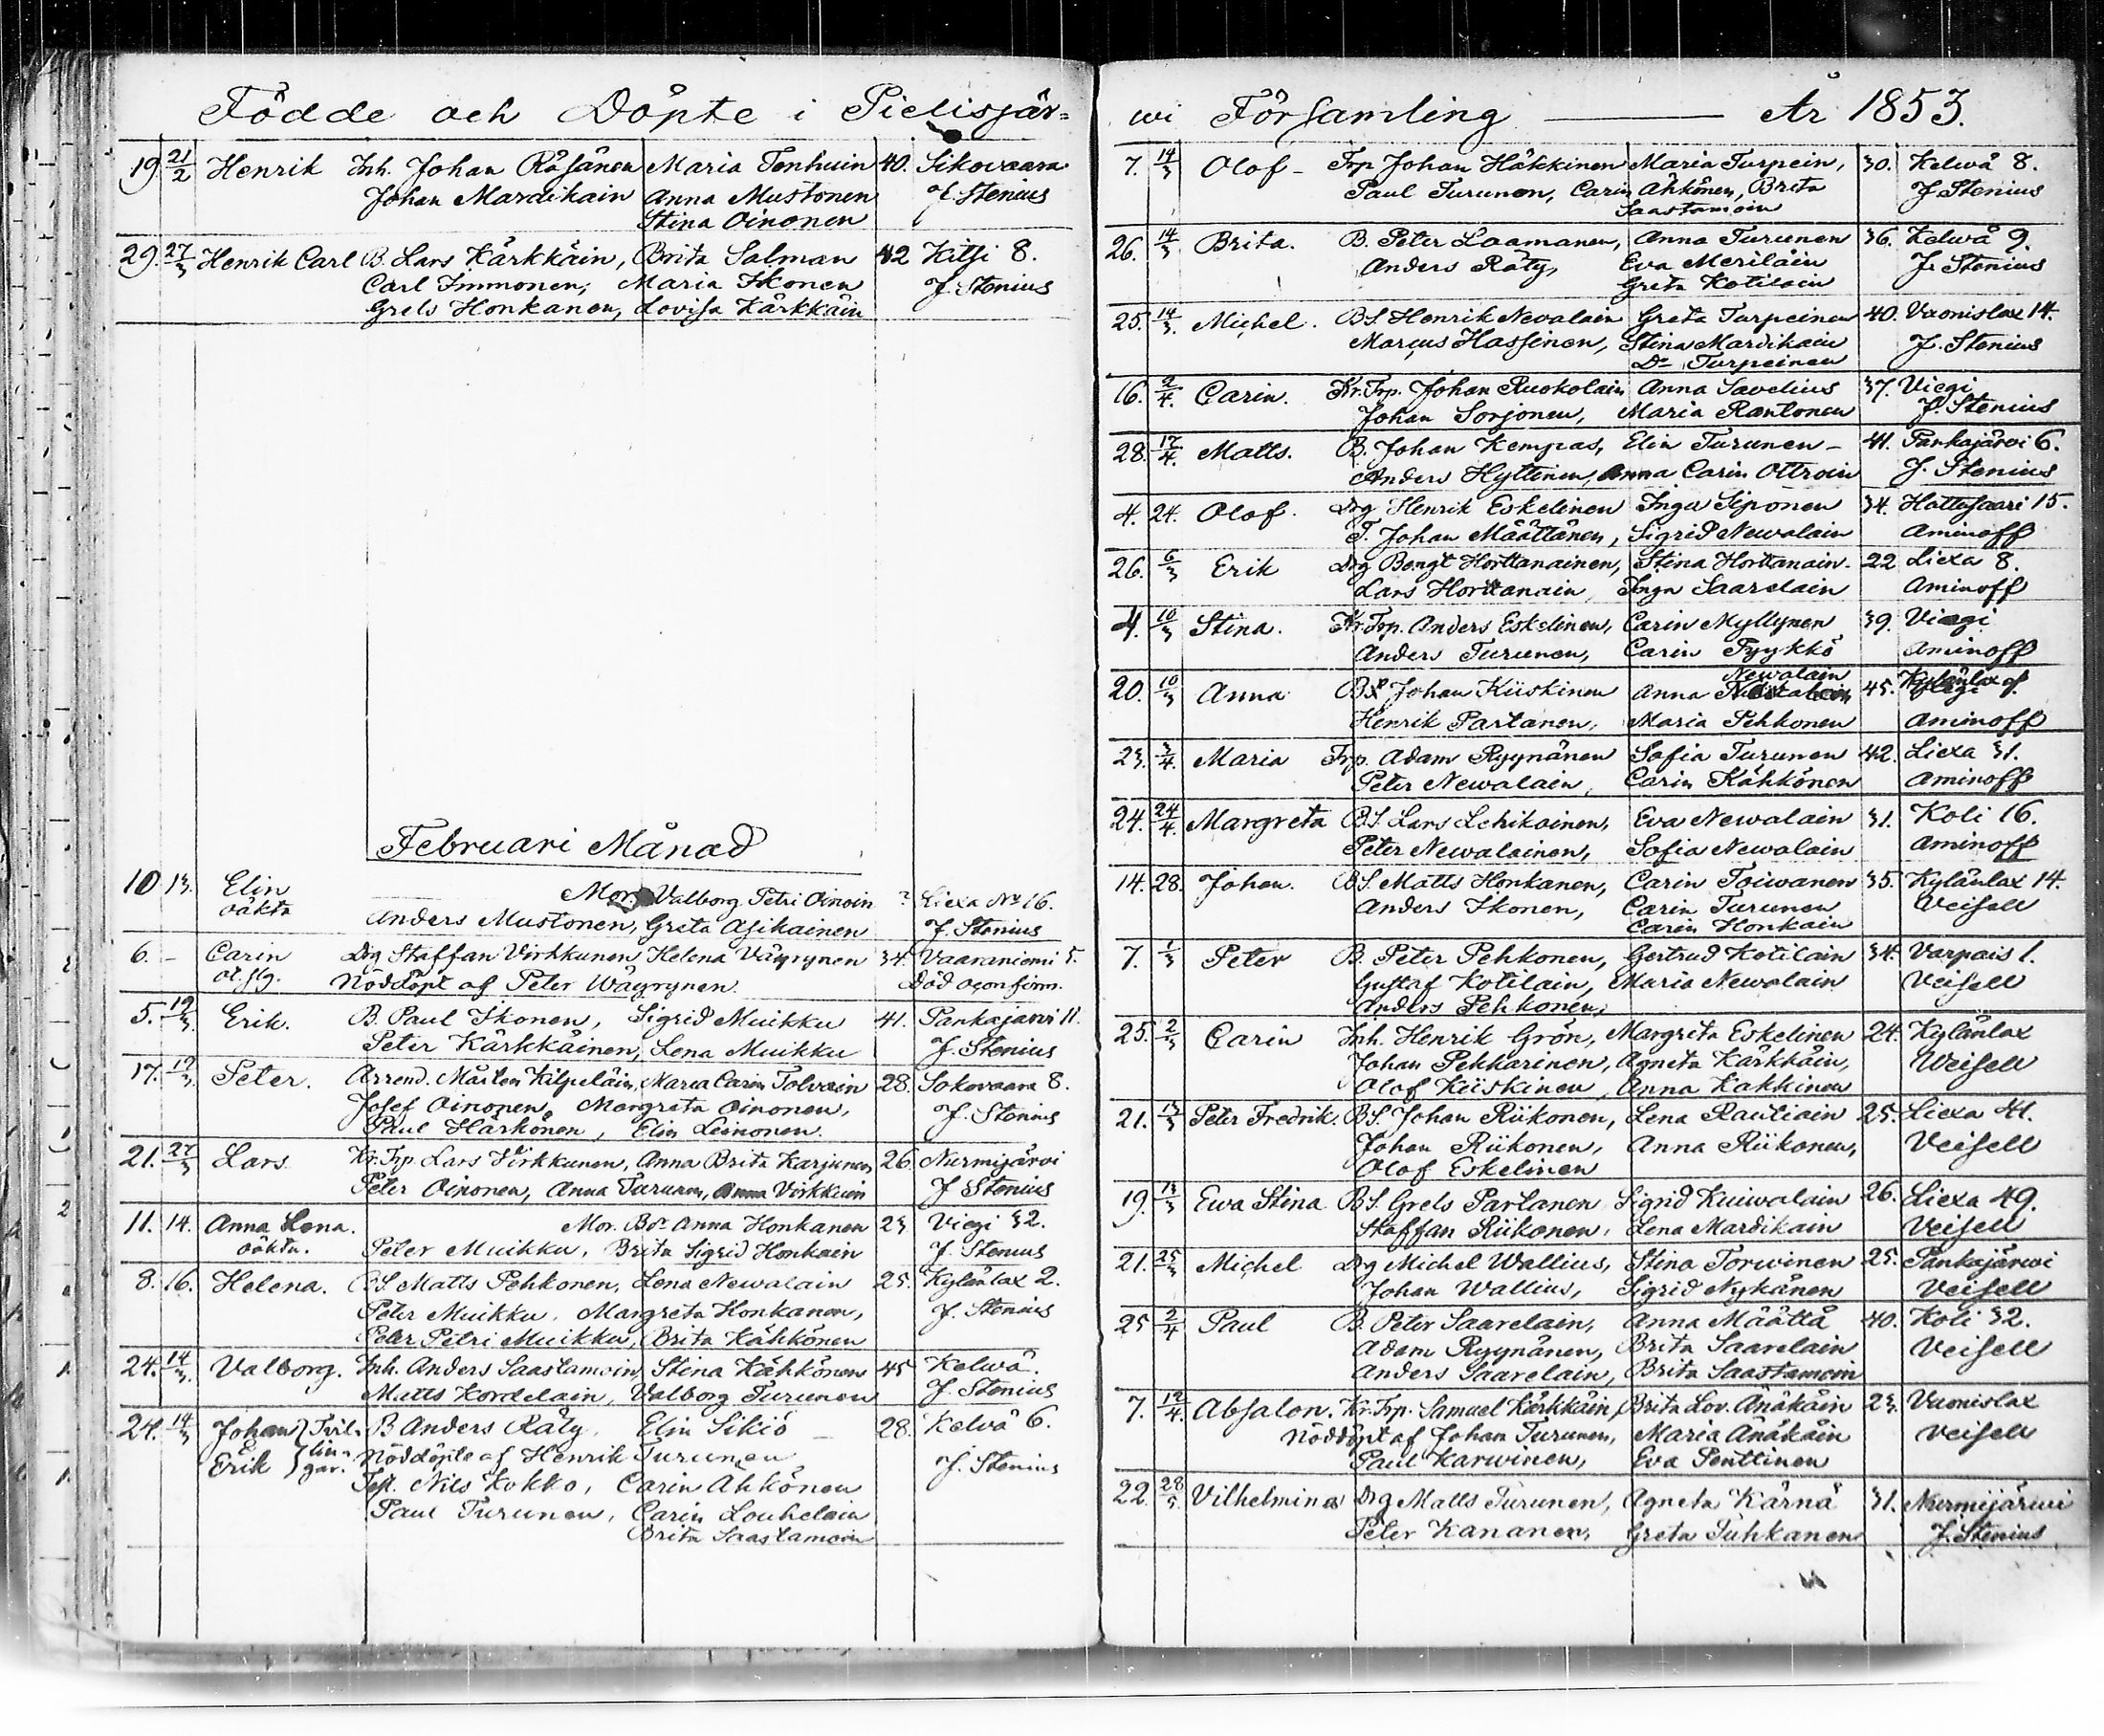 Födde och Döpte i Pielisjär=
19. 21/2 Henrik Inh. Johan Räsänen Maria Tenhuin 40. Sikovaara
Johan Mardikain Anna Mustonen J. Stenius
Stina Oinonen
29. 27/3 Henrik Carl B. Lars Kärkkäin, Brita Salman 42 Kitsi 8.
Carl Immonen, Maria Ikonen J. Stenius
Grels Honkanen, Lovisa Kärkkäin
Februari Månad
10 13. Elin Mor. Valborg Petri Oinoin ? Liexa No 16.
oäkta Anders Mustonen, Greta Asikainen J. Stenius
6. – Carin Drg Staffan Virkkunen Helena Väyrynen 34. Vaaraniemi 5.
Nöddöpt af Peter Wäyrynen. Död oconfirm.
5. 19/3 Erik. B. Paul Ikonen, Sigrid Muikku 41. Pankajärvi 11.
Peter Kärkkäinen, Lena Muikku J. Stenius
17. 19/3 Peter. Arrend. Mårten Kilpeläin, Maria Carin Tolvain 28. Sokovaara 8.
Josef Oinonen, Margreta Oinonen, J. Stenius
Paul Härkönen, Elin Leinonen.
21. 27/3 Lars Kr. Trp. Lars Virkkunen, Anna Brita Karjunen 26. Nurmijärvi
Peter Oinonen, Anna Turunen, Anna Virkkuin J. Stenius
11. 14. Anna Lena. Mor. Bdr Anna Honkanen 23 Viegi 32.
oäkta. Peter Muikku, Brita Sigrid Honkain J. Stenius
8. 16. Helena. BS. Matts Pehkonen, Lena Newalain 25. Kylänlax 2.
Peter Muikku, Margreta Honkanen, J. Stenius
Peter Petri Muikku, Brita Kähkönen
24. 14/3 Valborg. Inh. Anders Saastamoin, Stina Kähkönen 45 Kelwä.
Matts Kordelain, Valborg Turunen J. Stenius
24. 14/3 Johan } Tvil- B Anders Räty, Elin Sikiö – 28. Kelvä 6.
& } lin- Nöddöpte af Henrik Turunen
Erik } gar. J. Stenius
Test. Nils Kokko, Carin Ähkönen
Paul Turunen, Carin Louhelain
Brita Saastamoin
wi Församling — År 1853.
7. 14/3 Olof – Trp Johan Häkkinen Maria Turpein, 30. Kelwä 8.
Paul Turunen, Carin Ähkönen, Brita J. Stenius
Saastamoin
26. 14/3 Brita. B. Peter Laamanen, Anna Turunen 36. Kelwä 9.
Anders Räty, Eva Meriläin J. Stenius
Greta Kotilain
25. 14/3. Michel. BS. Henrik Nevalain Greta Turpeinen 40. Vuonislax 14.
Marcus Hassinen, Stina Mardikain J. Stenius
Do Turpeinen
16. 2/4. Carin. Kr. Trp. Johan Ruokolain Anna Savelius 37. Viegi
Johan Sorjonen, Maria Rantonen J. Stenius
28. 17/4. Matts. B. Johan Kempas, Elin Turunen – 41. Pankajärvi 6.
Anders Hyttinen, Anna Carin Ottroin J. Stenius
4. 24. Olof. Drg Henrik Eskelinen Inga Siponen 34. Hattusaari 15.
T. Johan Määttänen, Sigrid Newalain Aminoff
26. 6/3 Erik Drg Bengt Horttanainen, Stina Horttanain. 22 Liexa 8.
Lars Horttanain, Inga Saarelain Aminoff
4. 10/3 Stina. Kr. Trp. Anders Eskelinen, Carin Myllynen 39. Viegi
Anders Turunen, Carin Tyykkö Aminoff
Newalain
20. 10/3 Anna B Johan Kiiskinen Anna 45. Kylänlax
Henrik Partanen, Maria Pehkonen Aminoff
23. 3/4. Maria Trp. Adam Ryynänen Sofia Turunen 42. Liexa 31.
Peter Newalain, Carin Kähkönen Aminoff
24. 24/4. Margreta BS. Lars Lehikoinen, Eva Newalain 31. Koli 16.
Peter Newalainen, Sofia Newalain Aminoff
14. 28. Johan. BS. Matts Honkanen, Carin Toiwanen 35. Kylänlax 14.
Anders Ikonen, Carin Turunen Veisell
Carin Honkain
7. 1/3 Peter B. Peter Pehkonen, Gertrud Kotilain 34. Varpais 1.
Gustaf Kotilain, Maria Newalain Veisell
Anders Pehkonen,
25. 2/3 Carin Inh. Henrik Grön, Margreta Eskelinen 24. Kylänlax
Johan Pekkarinen, Agneta Kärkkäin, Weisell
Olof Kiiskinen, Anna Kakkinen
21. 13/3 Peter Fredrik. BS. Johan Riikonen, Lena Rautiain 25. Liexa 41.
Johan Riikonen, Anna Riikonen, Veisell
Olof Eskelinen
19. 13/3 Ewa Stina BS. Grels Partanen Sigrid Kuiwalain 26. Liexa 49.
Staffan Riikonen, Lena Mardikain Veisell
21. 25/3 Michel Drg Michel Wallius, Stina Torwinen 25. Pankajärwi
Johan Wallius, Sigrid Nykänen Veisell
25 2/4 Paul B. Peter Saarelain, Anna Määttä 40. Koli 32.
Adam Ryynänen, Brita Saarelain Veisell
Anders Saarelain, Brita Saastamoin
7. 12/4. Absalon. Kr. Trp. Samuel Kärkkäin, Brita Lov. Änäkäin 23. Vuonislax
Nöddöpt af Johan Turunen, Maria Änäkäin Veisell
Paul Karwinen, Eva Penttinen
22. 28/5. Vilhelmina Drg Matts Turunen, Agneta Kärnä 31. Nurmijärwi
Peter Kananen, Greta Tuhkanen J. Stenius